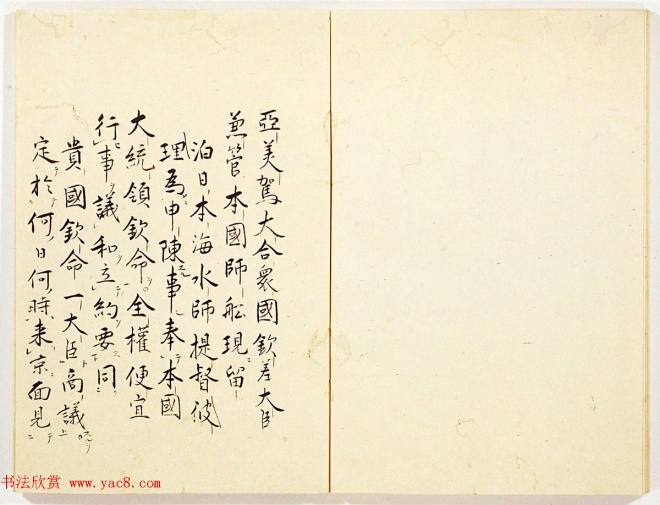 亞美駕大合衆國欽差大臣
兼管本國師舩現留
泊日本海水師提督彼
理為申陳事奉本國
大統領欽命全權便宜
行事議和立約要同
貴國欽命一大臣商議
定於何日何時来京面見
书法欣赏 www.yac8.com